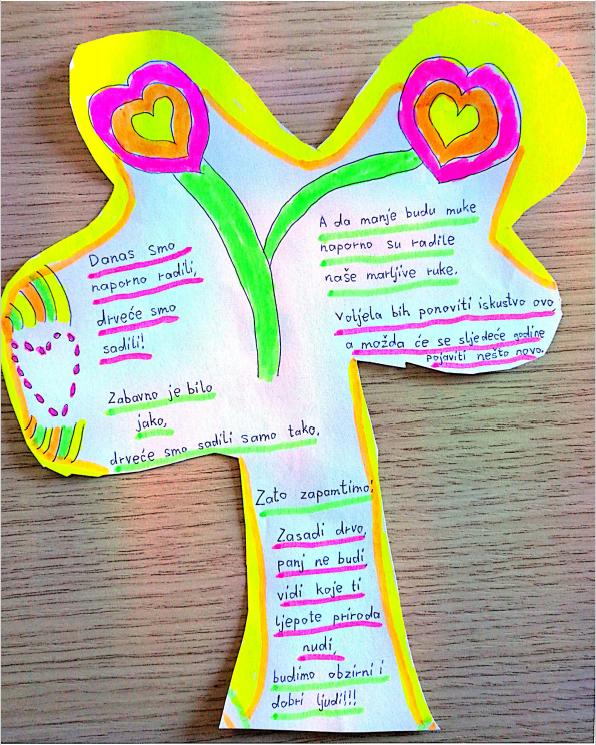 Danas smo
naporno radili,
drveće smo
sadili!
Zabavno je bilo
jako,
drveće smo sadili samo tako.
A da manje budu muke
naporno su radile
naše marljive ruke.
Voljela bih ponoviti iskustvo ovo
a možda će se sljedeće godine
pojaviti nešto novo.
Zato zapamtimo:
Zasadi drvo,
panj ne budi
vidi koje ti
ljepote priroda
nudi,
budimo obzirni i
dobri ljudi!!!